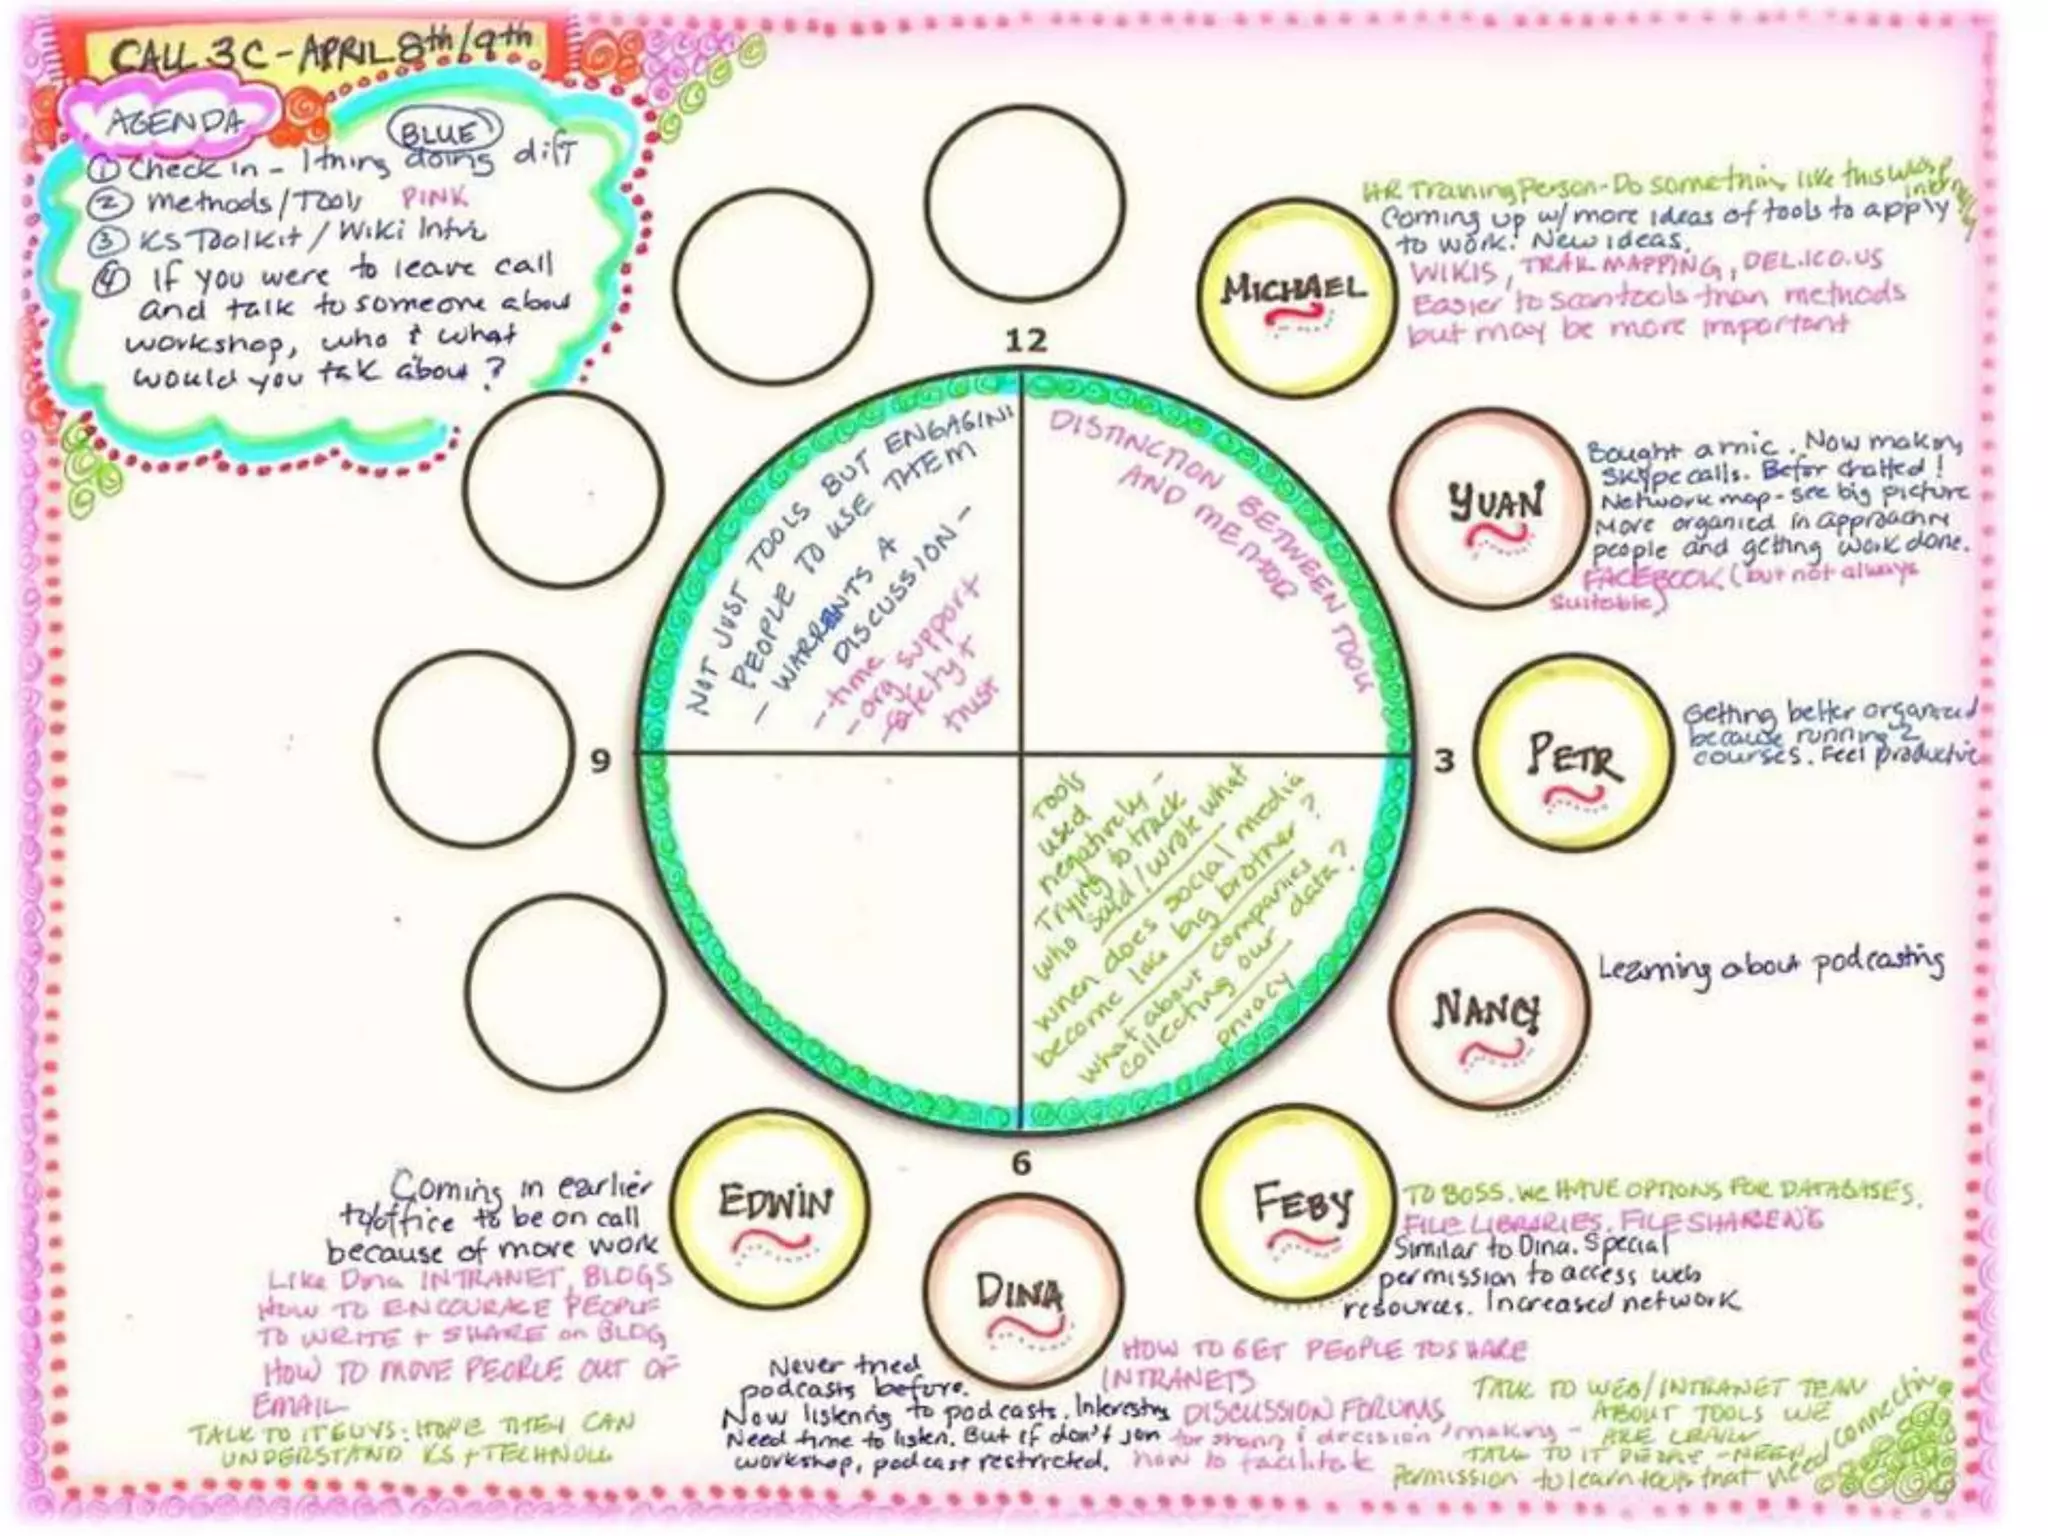 CALL 3C - APRIL 8th/9th
AGENDA
BLUE
① Check in - 1 thing doing diff
② Methods/Tools PINK
③ KS Toolkit / Wiki Intro
④ If you were to leave call
and talk to someone about
workshop, who & what
would you talk about?
12
3
6
9
NOT JUST TOOLS BUT ENGAGING
PEOPLE TO USE THEM
- WARRANTS A
DISCUSSION -
- time
- org support
- safety +
trust
DISTINCTION BETWEEN TOOLS
AND METHOD
Tools
used
negatively -
Trying to track
who said/wrote what
when does social media
become like big brother?
what about companies
collecting our data?
privacy
MICHAEL
HR Training Person - Do something like this
Coming up w/ more ideas of tools to apply
to work. New ideas.
WIKIS, TRAIL MAPPING, DEL.ICO.US
Easier to scan tools than methods
but may be more important
YUAN
Bought a mic. Now making
Skype calls. Befor chatted!
Network map - see big picture
More organied in approaching
people and getting work done.
FACEBOOK (but not always
suitable)
PETR
Getting better organized
because running 2
courses. Feel productive
NANCY
Learning about podcasting
FEBY
TO BOSS. WE HAVE OPTIONS FOR DATABASES.
FILE LIBRARIES. FILE SHARENG
Similar to Dina. Special
permission to access web
resources. Increased network
DINA
Never tried
podcasts before.
Now listening to podcasts. Interestng
Need time to listen. But if don't join
workshop, podcast restricted.
HOW TO GET PEOPLE TO SHARE
INTRANETS
DISCUSSION FORUMS
for sharing & decision making -
how to facilitate
TALK TO WEB/INTRANET TEAM
ABOUT TOOLS WE
ARE LEARN
TALK TO IT - NEED
Permission to learn tools that need
connecting
EDWIN
Coming in earlier
to office to be on call
because of more work
Like Dina INTRANET, BLOGS
HOW TO ENCOURAGE PEOPLE
TO WRITE + SHARE on BLOG
HOW TO MOVE PEOPLE OUT OF
EMAIL
TALK TO IT GUYS: HOPE THEY CAN
UNDERSTAND KS +